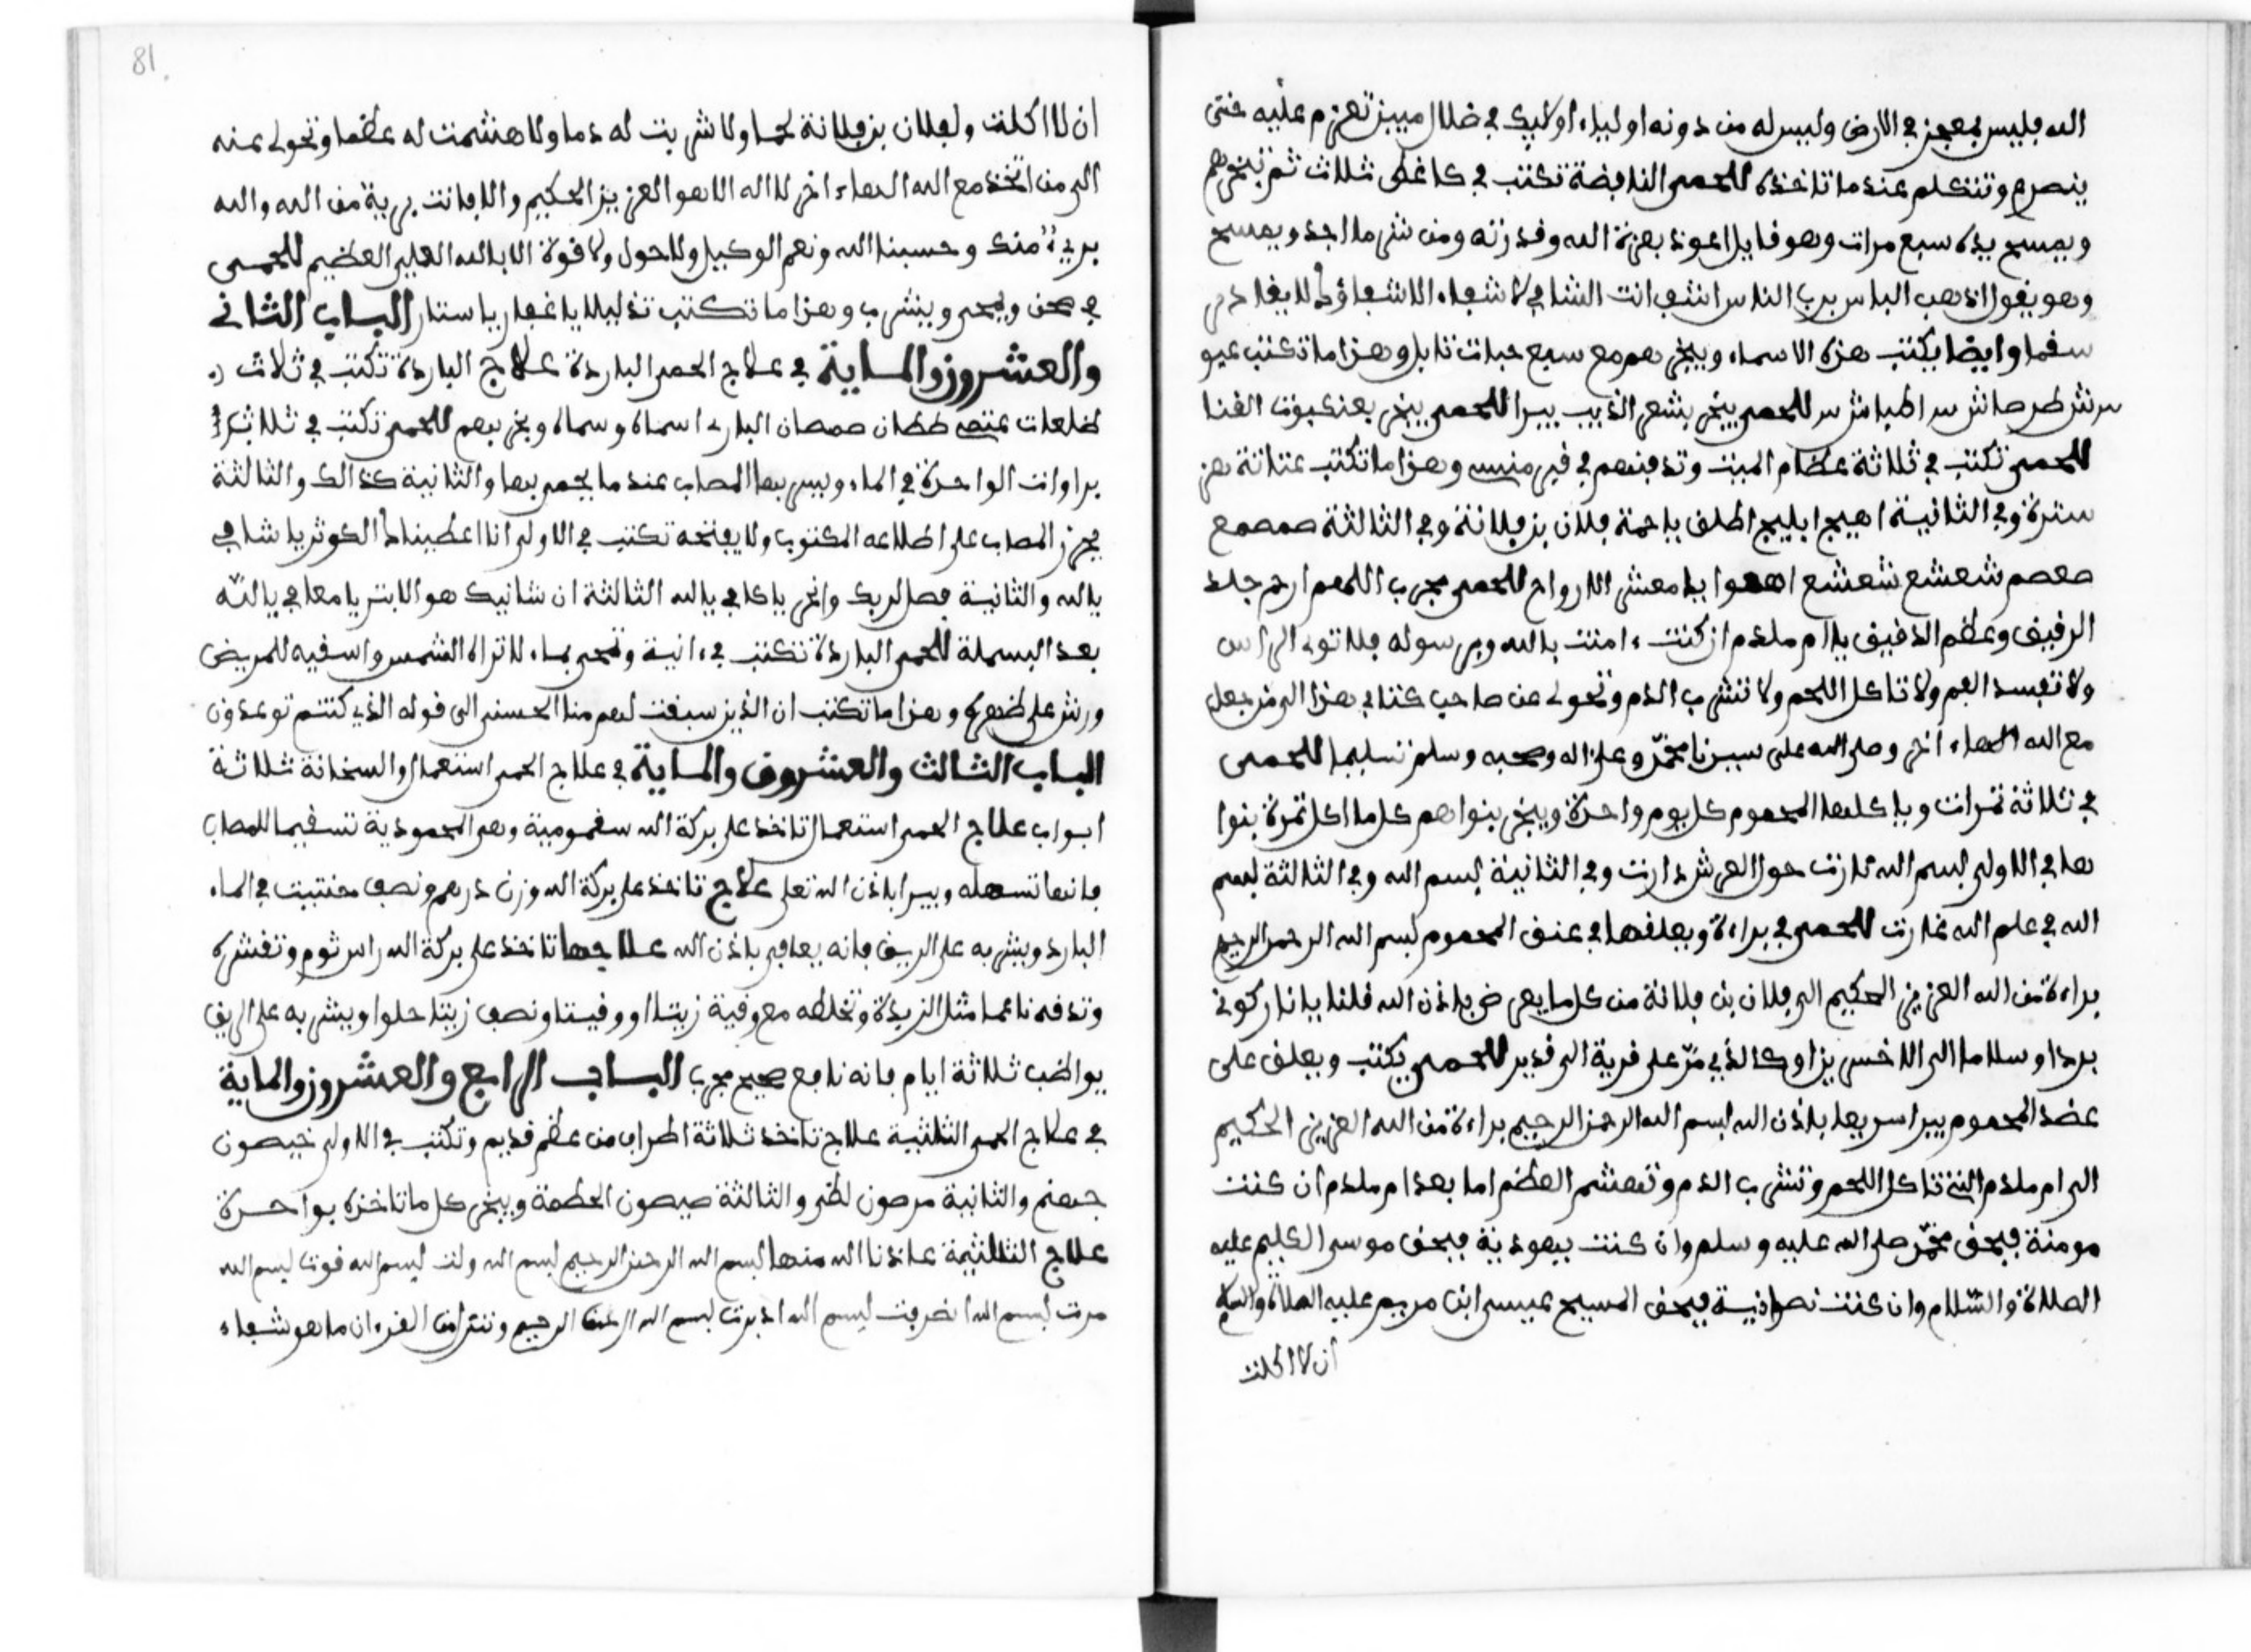 الله فليس بمعجز في الارض وليس له من دونه اولياء اولايك في ضلال مبين تعزم عليه حتى
ينصرع وتتكلم عندما تاخذه للحمى النافضة تكتب في كاغظ ثلاث ثم تبخرهم
ويمسح بيده سبع مرات وهو قايل اعوذ بعزة الله وقدرته ومن شر ما اجد ويمسح
وهو يقول اذهب الباس برب الناس اشف انت الشافي لا شفاء الا شفاؤك لا يغادر
سقما وايضا يكتب هذه الاسماء ويبخر هم مع سبع حبات تابل وهذا ما تكتب
للحمى يبخر بشعر الذيب يبرا للحمى يبخر بعنكبوت القنا
للحمى تكتب في ثلاثة عظام الميت وتدفنهم في قبر منسي وهذا ما تكتب
وفي الثانية اطلق ياحمة فلان بن فلانة وفي الثالثة صمصع
صعصم شعشع شعشع اهبوا يا معشر الارواح للحمى مجرب اللهم ارحم جلد
الرقيق وعظم الدقيق يا ام ملدم ان كنت ءامنت بالله وبرسوله فلا توء الراس
ولا تفسد الفم ولا تاكل اللحم ولا تشرب الدم وتحول عن صاحب كتابي هذا الى من جعل
مع الله الهاء اخر وصلى الله على سيدنا محمد وعلى اله وصحبه وسلم تسليما للحمى
في ثلاثة تمرات وياكلها المحموم كل يوم واحدة ويبخر بنواهم كل ما اكل تمرة بنوا
ها في الاولى بسم الله نارت حول العرش دارت وفي الثانية بسم الله وفي الثالثة بسم
الله في علم الله غارت للحمى في براءة ويعلقها في عنق المحموم بسم الله الرحمن الرحيم
براءة من الله العزيز الحكيم الى فلان بن فلانة من كل ما يعرض باذن الله قلنا يا نار كوني
بردا وسلاما الى الاخسرين او كالذي مر على قرية الى قدير للحمى يكتب ويعلق على
عضد المحموم يبرا سريعا باذن الله بسم الله الرحمن الرحيم براءة من الله العزيز الحكيم
الى ام ملدم التي تاكل اللحم وتشرب الدم وتهشم العظم اما بعد ام ملدم ان كنت
مومنة فبحق محمد صلى الله عليه وسلم وان كنت يهودية فبحق موسى الكليم عليه
الصلاة والسلام وان كنت نصرانية فبحق المسيح عيسى ابن مريم عليه الصلاة والسلام
ان لا اكلت
81
ان لا اكلت ولفلان بن فلانة لحما ولا شربت له دما ولا هشمت له عظما وتحول عنه
الى من اتخذ مع الله الهاء اخر لا اله الا هو العزيز الحكيم والا فانت برية من الله والله
بريء منك وحسبنا الله ونعم الوكيل ولا حول ولا قوة الا بالله العلي العظيم للحمى
في صحن ويمحى ويشرب وهذا ما تكتب يا غفار يا ستار الباب الثاني
والعشرون والماية في علاج الحمى الباردة علاج الباردة تكتب في ثلاث
وسماه ويبخر بهم للحمى تكتب في ثلاث
براوات الواحدة في الماء المصاب عندما يحمى بها والثانية كذالك والثالثة
يحرز المصاب على المكتوب ولا يفتحه تكتب في الاولى انا اعطيناك الكوثر يا شافي
يا الله والثانية فصل لربك وانحر يا كافي يا الله الثالثة ان شانيك هو الابتر يا معافي يا الله
بعد البسملة للحمى الباردة تكتب في ءانية وتمحى بماء لا تراه الشمس واسقيه للمريض
ورش على ظهره وهذا ما تكتب ان الذين سبقت لهم منا الحسنى الى قوله الذي كنتم توعدون
الباب الثالث والعشرون والماية في علاج الحمى استعمال والسخانة ثلاثة
ابواب علاج الحمى استعمال تاخذ على بركة الله سقمومية وهي المحمودية تسقيها للمصاب
فانها تسهله ويبرا باذن الله تعلى علاج تاخذ على بركة الله وزن درهم ونصف حنتيت في الماء
البارد ويشربه على الريق فانه يعافى باذن الله علاجها تاخذ على بركة الله راس ثوم وتقشره
وتدقه ناعما مثل الزبدة وتخلطه مع وقية زيتا او وقيتا ونصف زيتا حلوا ويشربه على الريق
يواظب ثلاثة ايام فانه نافع صحيح مجرب الباب الرابع والعشرون والماية
في علاج الحمى الثلثية علاج تاخذ ثلاثة اطراف من عظم قديم وتكتب في الاولى خيصون
جهنم والثانية مرصون لظى والثالثة صيصون الحطمة ويبخر كل ما تاخذه بواحدة
علاج الثلثية عاذنا الله منها بسم الله الرحمن الرحيم بسم الله ولت بسم الله فوت بسم الله
مرت بسم الله بسم الله ادبرت بسم الله الرحمن الرحيم وننزل من القرءان ما هو شفاء